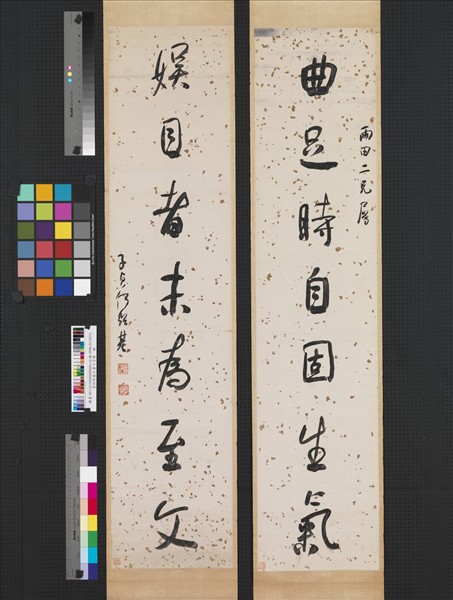 雨田二兄屬
曲足時自固生氣
娛目者未為至文
子貞何紹基